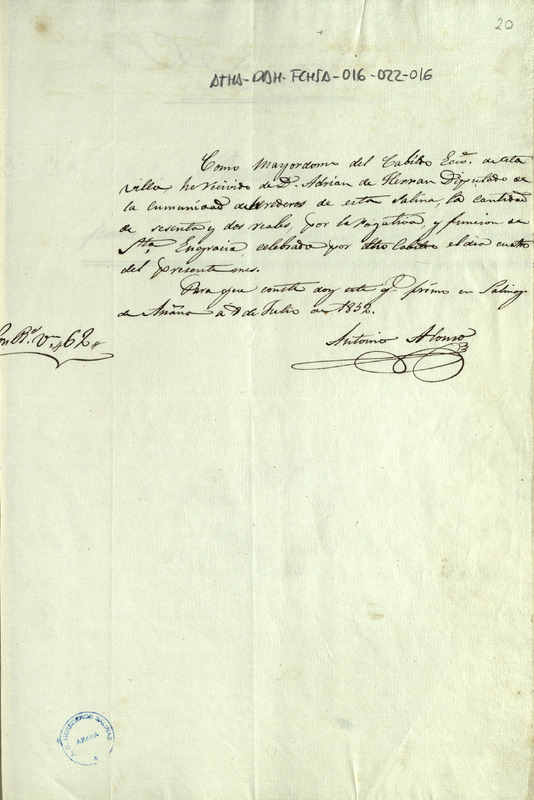 20
ATHA-DAH-FCHSA-016-022-016
Como Mayordomo del Cabildo Ecco. de esta
villa he recivido de D. Adrian de Herran Diputado de
la comunidad de erederos de esta Salina, la cantidad
de sesenta y dos reales, por la rogativa y funcion de
Sta. Engracia celebrada por dho Cabildo el dia cuatro
del presente mes.
Para que conste doy este q. firmo en Salinas
de Añana a 8 de Julio de 1832.
Son Rs. vn. 62
Antonio Alonso
HEREDEROS SALINAS
AÑANA